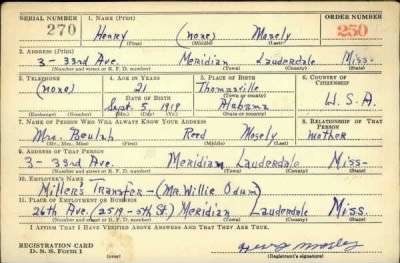 SERIAL NUMBER 1. NAME (Print) ORDER NUMBER
270 Henry (none) Mosely 250
(First) (Middle) (Last)
2. ADDRESS (Print)
3 - 33rd Ave. Meridian Lauderdale Miss.
(Number and street or R. F. D. number) (Town) (County) (State)
3. TELEPHONE 4. AGE IN YEARS 5. PLACE OF BIRTH 6. COUNTRY OF CITIZENSHIP
(none) 21 Thomasville
DATE OF BIRTH (Town or county)
Sept. 5, 1919 Alabama U.S.A.
(Exchange) (Number) (Mo.) (Day) (Yr.) (State or country)
7. NAME OF PERSON WHO WILL ALWAYS KNOW YOUR ADDRESS 8. RELATIONSHIP OF THAT PERSON
Mrs. Beulah Reed Mosely mother
(Mr., Mrs., Miss) (First) (Middle) (Last)
9. ADDRESS OF THAT PERSON
3 - 33rd Ave. Meridian Lauderdale Miss-
(Number and street or R. F. D. number) (Town) (County) (State)
10. EMPLOYER'S NAME
Miller's Transfer - (Mr. Willie Odum)
11. PLACE OF EMPLOYMENT OR BUSINESS
26th Ave. (2519 - 5th St.) Meridian Lauderdale Miss.
(Number and street or R. F. D. number) (Town) (County) (State)
I AFFIRM THAT I HAVE VERIFIED ABOVE ANSWERS AND THAT THEY ARE TRUE.
REGISTRATION CARD
D. S. S. Form 1 Henry Mosley
(Registrant's signature)